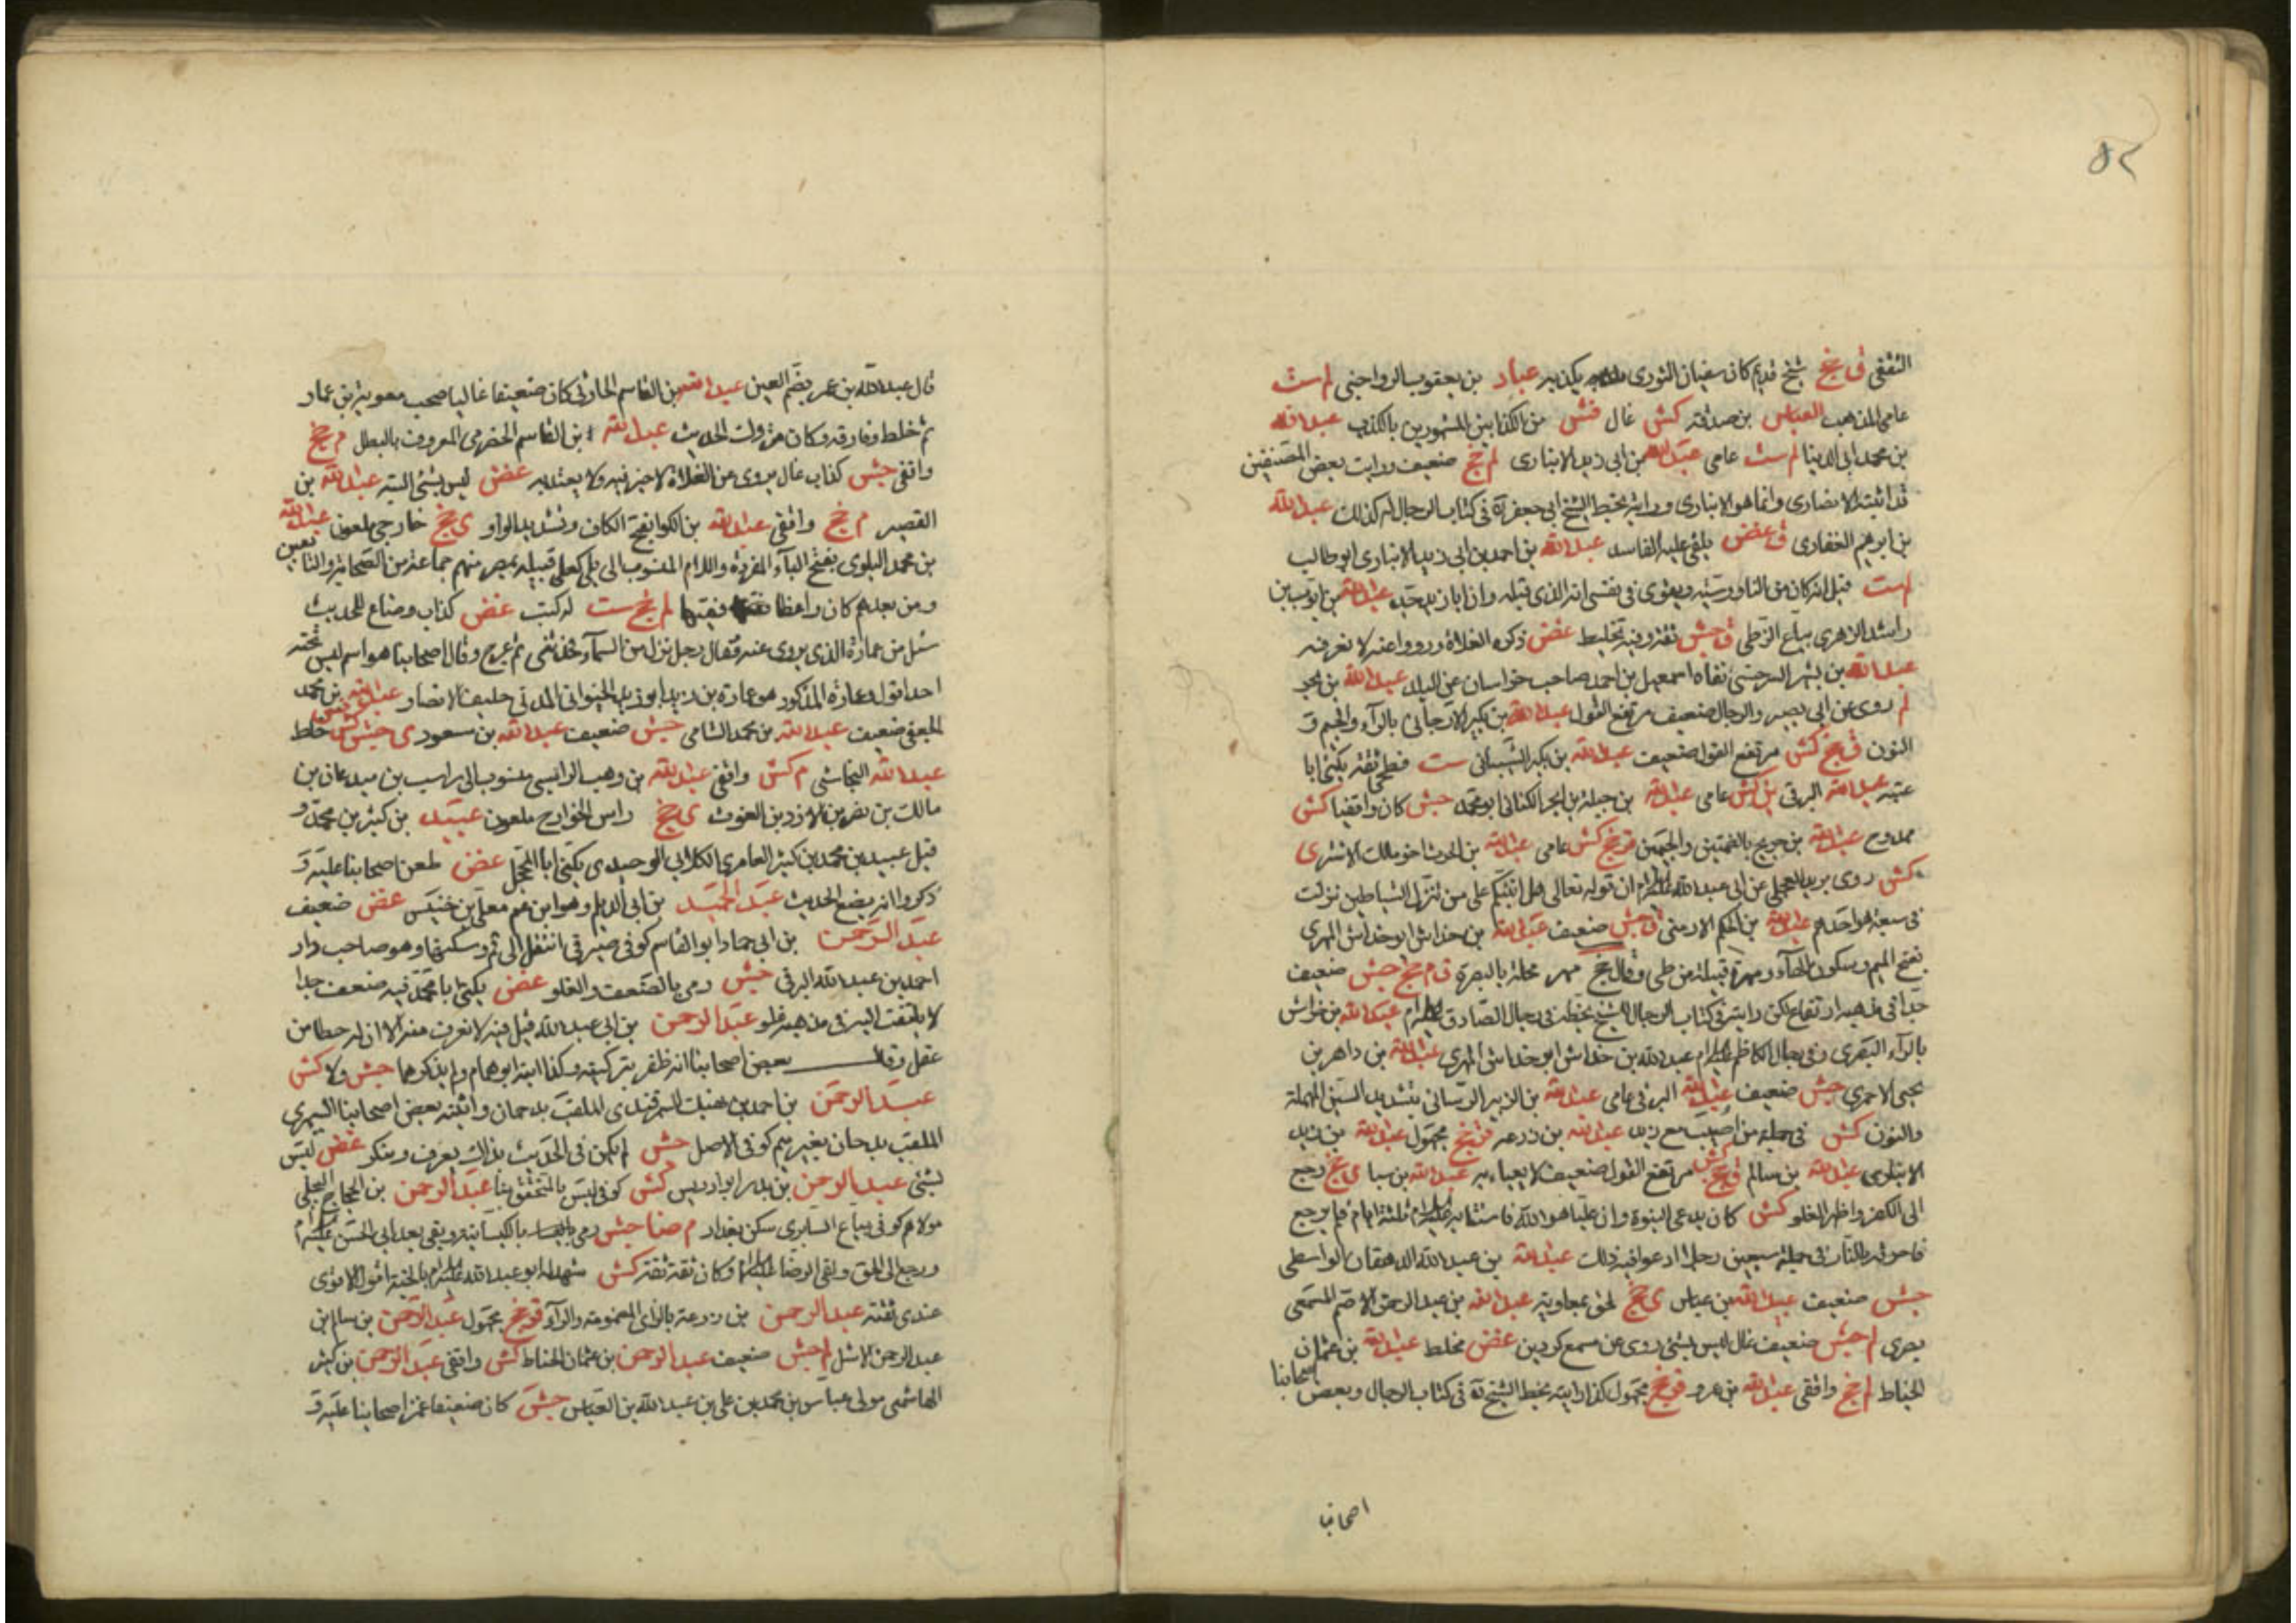 ٥٢
الثقفي ق جخ شيخ قديم كان سفيان الثوري يكذبه عباد بن يعقوب الرواجني لم ست
عامي المذهب العباس بن صدقة كش غال فش من الكذابين المشهورين بالكذب عبد الله
بن محمد ابي الدنيا لم ست عامي عبد الله بن ابي زيد الانباري لم جخ ضعيف ورايت بعض المصنفين
قد اثبته الانصاري وانما هو الانباري ورايته بخط الشيخ ابي جعفر ره في كتاب الرجال له كذلك عبد الله
بن ابرهيم الغفاري ق غض يلقى عليه الفاسد عبد الله بن احمد بن ابي زيد الانباري ابو طالب
لم ست قيل انه كان من الناووسية ويقوى في نفسي انه الذي قبله وان ابا زيد جده عبد الله بن ايوب بن
راشد الزهري بياع الزطي ق جش ثقة وفيه تخليط غض ذكره الغلاة ورووا عنه لا نعرفه
عبد الله بن بشير السرخسي نفاه اسمعيل بن احمد صاحب خراسان عن البلد عبد الله بن بحر
لم روى عن ابي بصير والرجال ضعيف مرتفع القول عبد الله بن بكير الارجاني بالراء والجيم و
النون ق جخ كش مرتفع القول ضعيف عبد الله بن بكير الشيباني ست فطحي ثقة يكنى ابا
عتبة عبد الله البرقي ين كش عامي عبد الله بن جبلة بن ابجر الكناني ابو محمد جش كان واقفيا كش
ممدوح عبد الله بن جريح بالضمتين والجيمين قر جخ كش عامي عبد الله بن الحرث اخو مالك الاشتر ي
كش روى بريد العجلي عن ابي عبد الله عليه السلام ان قوله تعالى هل انبئكم على من تنزل الشياطين نزلت
في سبعة هو احدهم عبد الله بن الحكم الارمني ق جش ضعيف عبد الله بن خداش ابو خداش المهري
بفتح الميم وسكون الهاء ومهرة قبيلة من طي وقال جخ مهر محلة بالبصرة ق م جخ جش ضعيف
جدا في مذهبه ارتفاع لكن رايته في كتاب الرجال للشيخ بخطه في رجال الصادق عليه السلام عبد الله بن خراش
بالراء البصري وفي رجال الكاظم عليه السلام عبد الله بن خداش ابو خداش المهري عبد الله بن داهر بن
يحيى الاحمري جش ضعيف عبد الله البرقي عامي عبد الله بن الزبير الرساني بتشديد السين المهملة
والنون كش في جملة من اصيب مع زيد عبد الله بن زرعه قر جخ مجهول عبد الله بن زيد
الابلاوي عبد الله بن سالم ق جخ كش مرتفع القول ضعيف لا يعباء به عبد الله بن سبا ي جخ رجع
الى الكفر واظهر الغلو كش كان يدعي النبوة وان عليا هو الله فاستتابه عليه السلام ثلثة ايام فلم يرجع
فاحرقه بالنار في جملة سبعين رجلا ادعوا فيه ذلك عبد الله بن عبد الله الدهقان الواسطي
جش ضعيف عبيد الله بن عباس ي جخ لحق بمعاوية عبد الله بن عبد الرحمن الاصم المسمعي
بصري لم جش ضعيف غال ليس بشئ روى عن مسمع كردين غض مخلط عبد الله بن عثمان
الحناط لم جخ واقفي عبد الله بن عمرو قر جخ مجهول كذا رايته بخط الشيخ ره في كتاب الرجال وبعض اصحابنا
اصحابنا
قال عبد الله بن عمر بضم العين عبد الله بن القاسم الحارثي كان ضعيفا غاليا صحب معوية بن عمار
ثم خلط وفارقه وكان متروك الحديث عبد الله بن القاسم الحضرمي المعروف بالبطل م جخ
واقفي جش كذاب غال يروى عن الغلاة لا خير فيه ولا يعتد به غض ليس بشئ البته عبد الله بن
القصير م جخ واقفي عبد الله بن الكوا بفتح الكاف وتشديد الواو ي جخ خارجي ملعون عبد الله
بن محمد البلوي بفتح الباء المفردة واللام المنسوب الى بلي كعلي قبيلة بمصر منهم جماعة من الصحابة والتابعين
ومن بعدهم كان واعظا فقيها لم جخ ست له كتب غض كذاب وضاع للحديث
سئل من عمارة الذي يروى عنه فقال رجل نزل من السماء حدثني ثم عرج وقال اصحابنا هو اسم ليس تحته
احد اقول وعمارة المذكور هو عمارة بن زيد ابو زيد الخيواني المدني حليف الانصار عبد الله بن محمد
الجعفي ضعيف عبد الله بن محمد الشامي جش ضعيف عبد الله بن مسعود ي جش كش خلط
عبد الله النجاشي م كش واقفي عبد الله بن وهب الراسبي منسوب الى راسب بن ميدعان بن
مالك بن نضر بن الازد بن الغوث ي جخ راس الخوارج ملعون عبيد بن كثير بن محمد و
قيل عبيد بن محمد بن كثير العامري الكلابي الوحيدي يكنى ابا المحجل غض طعن اصحابنا عليه و
ذكروا انه يضع الحديث عبد الحميد بن ابي الديلم وهو ابن عم معلى بن خنيس غض ضعيف
عبد الرحمن بن ابي حماد ابو القاسم كوفي صيرفي انتقل الى قم وسكنها وهو صاحب دار
احمد بن عبد الله البرقي جش رمي بالضعف والغلو غض يكنى ابا محمد فيه ضعف جدا
لا يلتفت اليه في مذهبه غلو عبد الرحمن بن ابي عبد الله قيل فيه لا نعرف منه الا ان له حظا من
عقل وقال بعض اصحابنا انه ظفر بتزكيته وكذا ابنه ابو همام ولم يذكرهما جش ولا كش
عبد الرحمن بن احمد بن نهيك السمرقندي الملقب بدحمان واثبته بعض اصحابنا السمري
الملقب بدحان بغير ميم كوفي الاصل جش لم يكن في الحديث بذاك يعرف وينكر غض ليس
بشئ عبد الرحمن بن بدر ابو ادريس كش كوفي ليس بالمتحقق بنا عبد الرحمن بن الحجاج البجلي
مولاهم كوفي بياع السابري سكن بغداد م ضا جش رمي بالكيسانية وبقي بعد ابي الحسن عليه السلام
ورجع الى الحق ولقي الرضا عليه السلام وكان ثقة ثقة كش شهد له ابو عبد الله عليه السلام بالجنة اقول الاقوى
عندي ثقته عبد الرحمن بن زرعة بالزاي المضمومة والراء قر جخ مجهول عبد الرحمن بن سالم بن
عبد الرحمن الاشل لم جش ضعيف عبد الرحمن بن عثمان الحناط كش واقفي عبد الرحمن بن كثير
الهاشمي مولى عباس بن محمد بن علي بن عبد الله بن العباس جش كان ضعيفا غمز اصحابنا عليه و